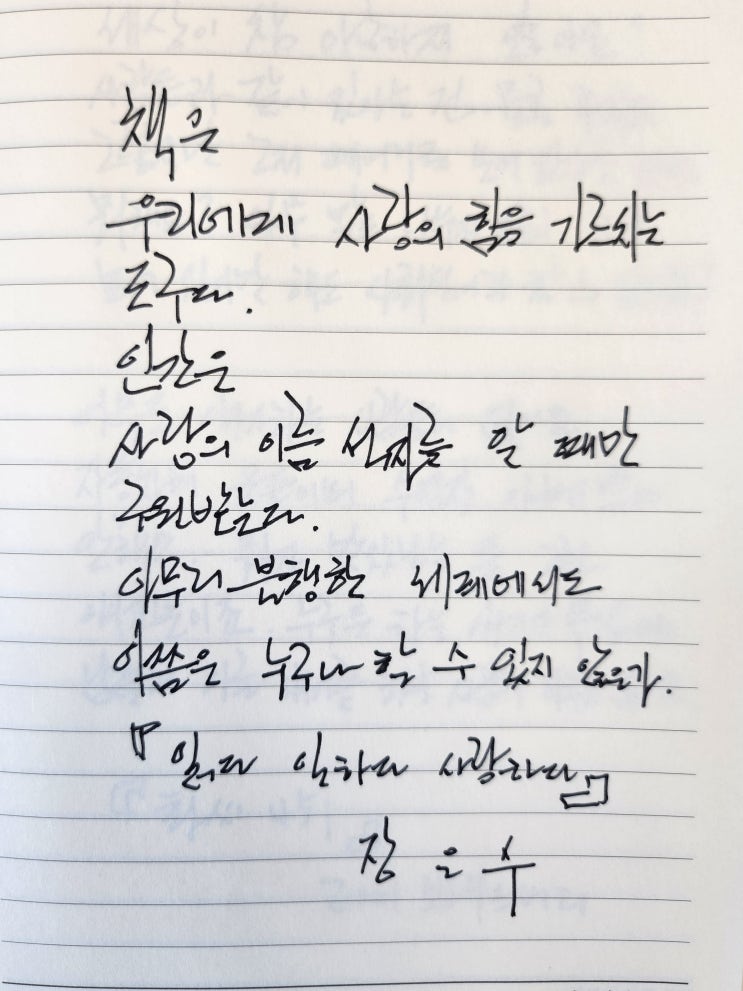 책은
우리에게 사랑의 힘을 기르치는
도구다.
인간은
사랑의 이름 석자를 알 때만
구원받는다.
아무리 불행한 세계에서도
이쯤은 누구나 할 수 있지 않은가.
『읽다 일하다 사랑하다』
장은수